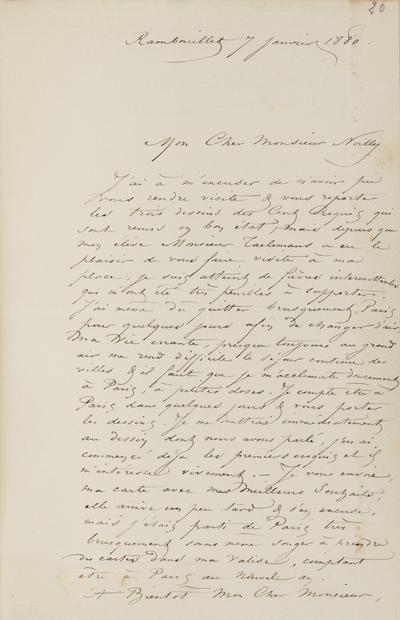 20
Rambouillet 7 janvier 1880.
Mon Cher Monsieur Noilly
J'ai à m'excuser de n'avoir pu
vous rendre visite & vous reporter
les trois dessins des Cent Croquis qui
sont remis en bon état, mais depuis que
mon élève Monsieur Taelemans a eu le
plaisir de vous faire visite à ma
place, je suis atteint de fièvres intermittentes
qui m'ont été très pénibles à supporter.
J'ai même dû quitter brusquement Paris
pour quelques jours afin de changer d'air
Ma Vie errante, presque toujours au grand
air me rend difficile le séjour continu des
villes & il faut que je m'acclimate doucement
à Paris, à petites doses. Je compte être à
Paris dans quelques jours & vous porter
les dessins. Je me mettrai immédiatement
au dessin dont nous avons parlé, j'en ai
commencé déja les premiers croquis et il
m'intéresse vivement — Je vous envoie,
ma carte avec mes Meilleurs Souhaits,
elle arrive un peu tard & s'en excuse,
mais j'étais parti de Paris très
brusquement sans même songer à prendre
des cartes dans ma Valise, comptant
être à Paris au Nouvel an.
A Bientôt Mon Cher Monsieur,